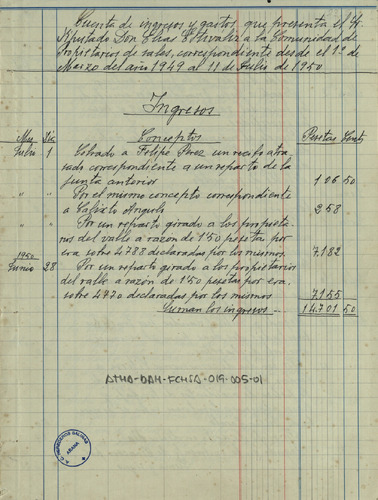 Cuenta de ingresos y gastos que presenta el Sr
Diputado Don Elias a la Comunidad de
Propietarios de sales, correspondiente desde el 1º de
Marzo del año 1949 al 11 de Julio de 1950.
Ingresos
Mes Día Conceptos Pesetas Cents
Julio 1 Cobrado a Felipe Perez un recibo atra-
sado correspondiente a un reparto de la
junta anterior 106 50
" " Por el mismo concepto correspondiente
a Calixto Angulo 258
" " Por un reparto girado a los propieta-
rios del valle a razón de 1'50 pesetas por
era sobre 4788 declaradas por los mismos. 7.182
1950
Junio 28 Por un reparto girado a los propietarios
del valle a razón de 1'50 pesetas por era,
sobre 4770 declaradas por los mismos 7.155
Suman los ingresos 14.701 50
ATHA-DAH-FCMSA-019-005-01